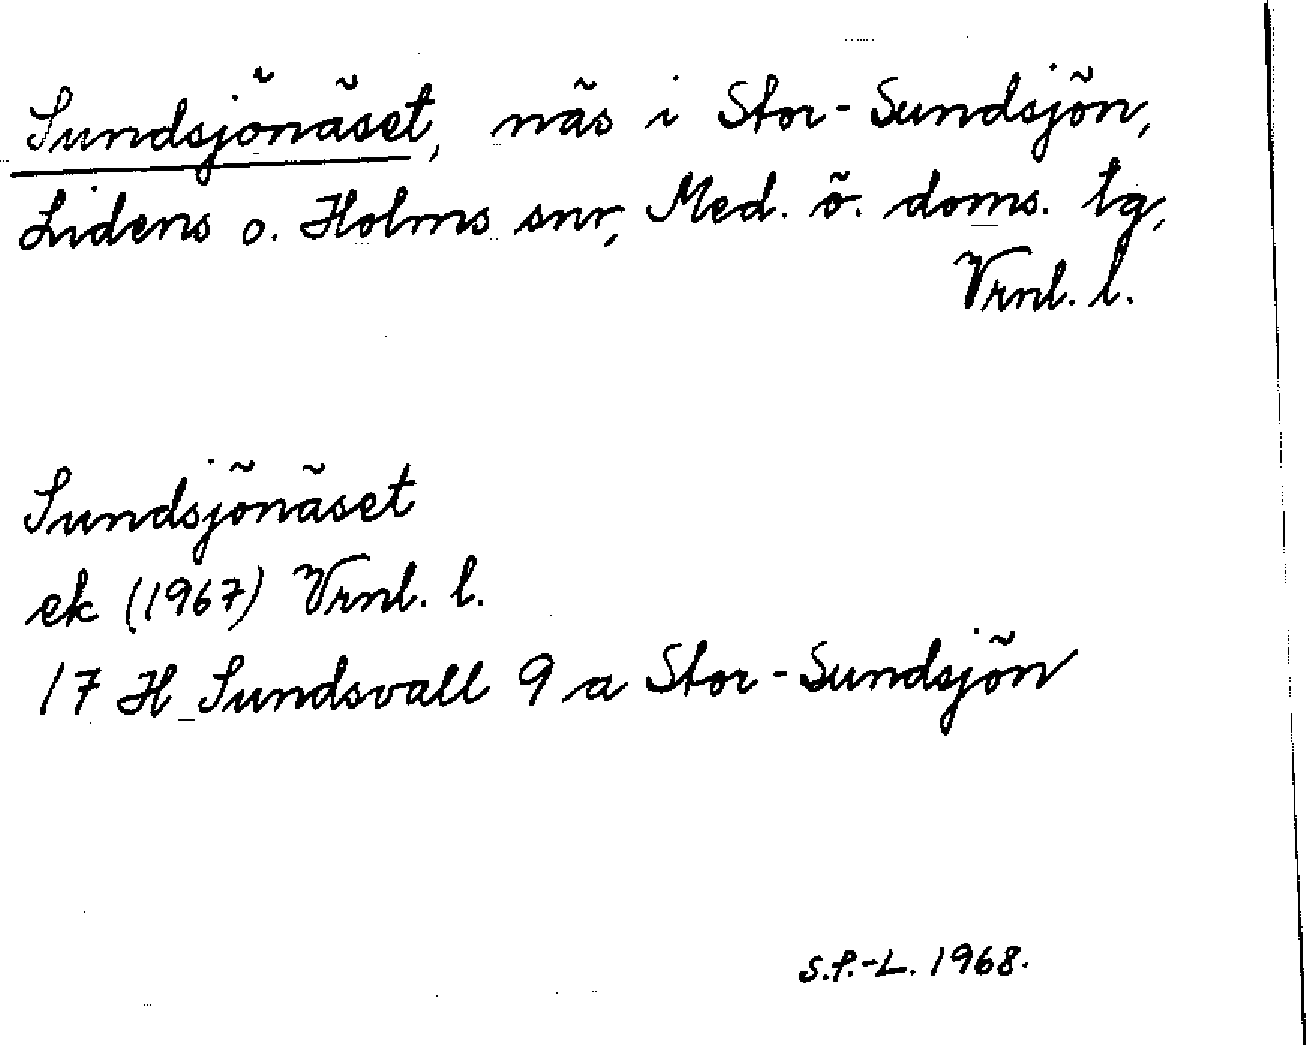 Sundsjönäset, näs i Stor-Sundsjön,
Lidens o. Holms snr, Med. ö. doms. lg,
Vrnl. l.
Sundsjönäset
ek (1967) Vrnl. l.
17 H Sundsvall 9 a Stor-Sundsjön
S.P.-L. 1968.